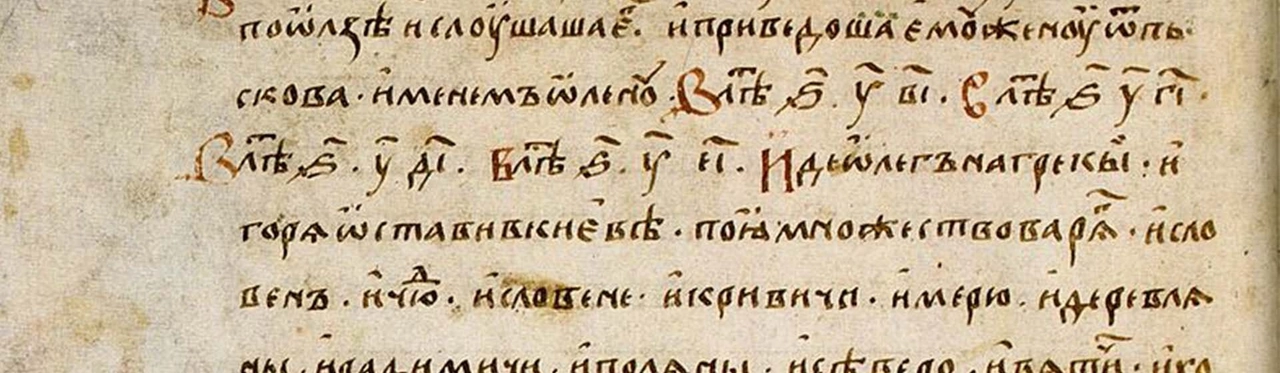 поѡлзѣ и слоушаша е҃г. и приведоша ємоу женоу ѿ пь
скова. именемъ ѡленоу. В лѣⷮ ҂ѕ҃. у҃. в҃і. В лѣⷮ ҂ѕ҃ у҃ г҃і.
В лѣⷮ ҂ѕ҃. у҃ д҃і. В лѣⷮ ҂ѕ҃. у҃ е҃і. Иде ѡлегъ на грекы. и
горѧ ѡставивъ києвѣ. поꙗ множество варѧⷢ. и сло
венъ. и чюⷣ. и словене. и кривичи. и мерю. и деревлѧ
ны. и радимичи. и полѧны. и сѣверо. и вѧтичи. и хо